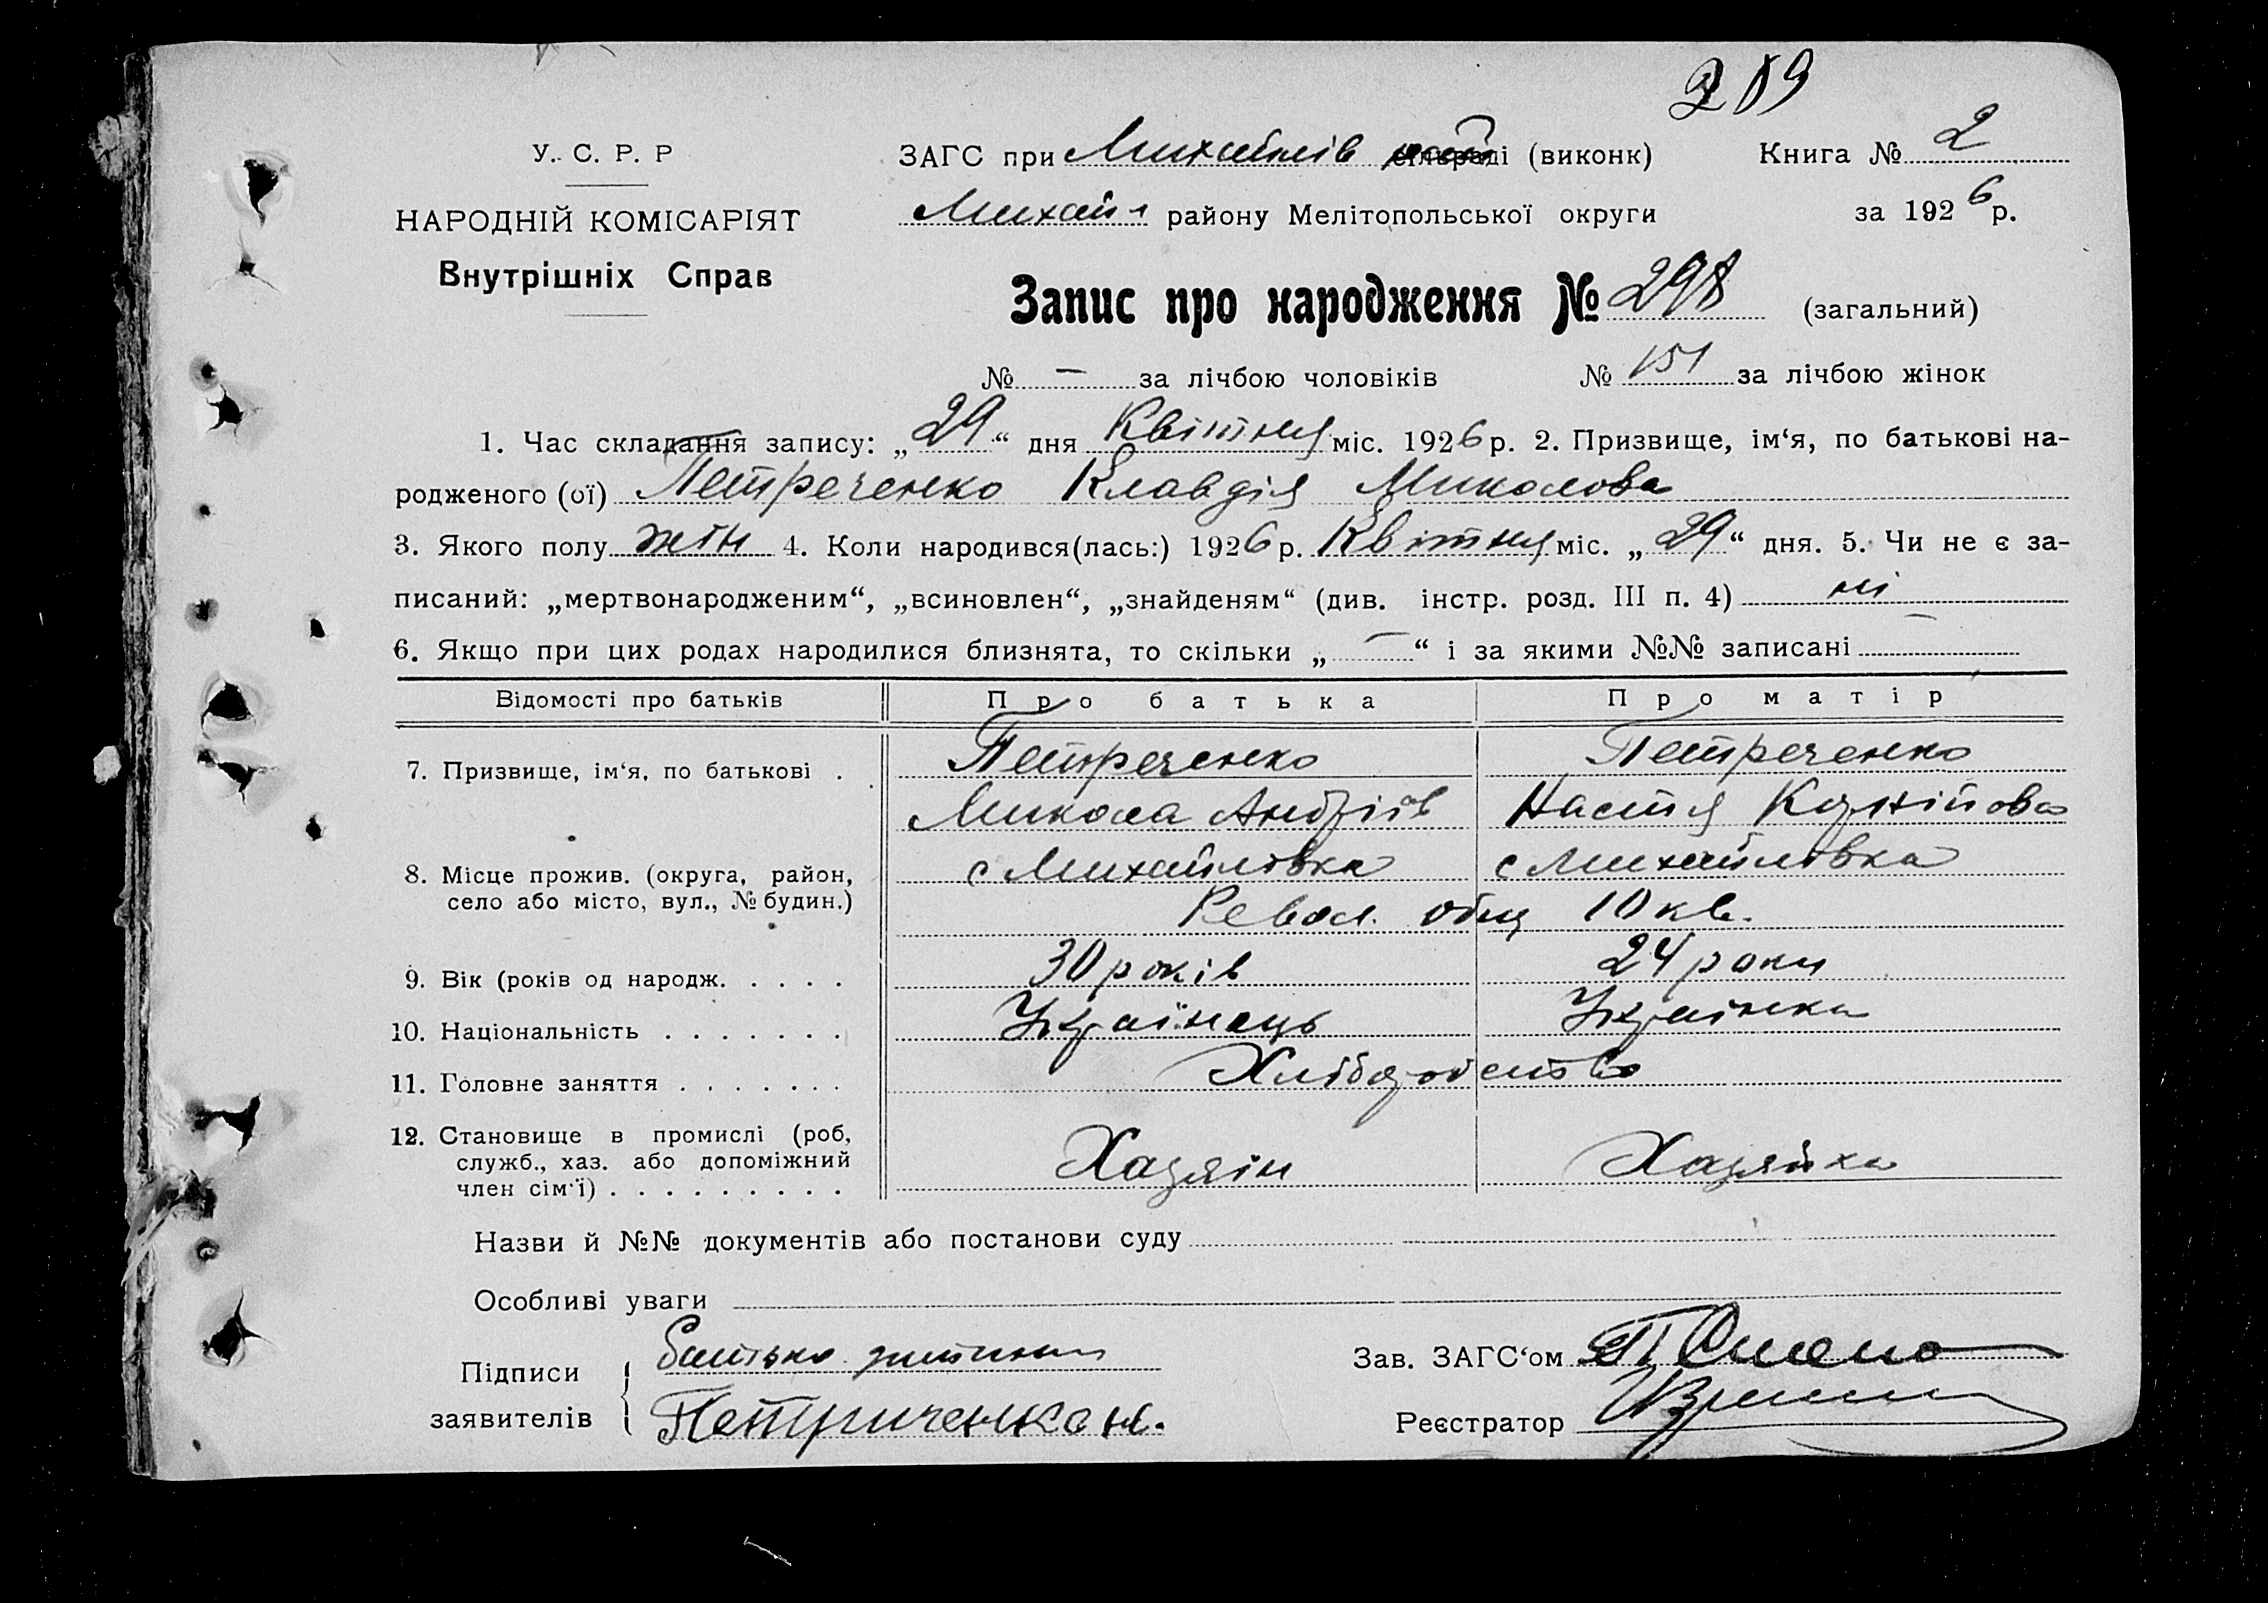 209
У. С. Р. Р
НАРОДНІЙ КОМІСАРІЯТ
Внутрішніх Справ
ЗАГС при Михайлів сільраді (виконк) Книга № 2
Михайл району Мелітопольської округи за 1926 р.
Запис про народження № 298 (загальний)
№ — за лічбою чоловіків № 151 за лічбою жінок
1. Час складання запису: „29“ дня Квітня міс. 1926 р. 2. Призвище, ім‘я, по батькові на-
родженого (ої) Петреченко Клавдія Миколова
3. Якого полу жін 4. Коли народився(лась:) 1926 р. Квітня міс. „29“ дня. 5. Чи не є за-
писаний: „мертвонародженим“, „всиновлен“, „знайденям“ (див. інстр. розд. III п. 4) ні
6. Якщо при цих родах народилися близнята, то скільки „—“ і за якими №№ записані —
Відомості про батьків Про батька Про матір
7. Призвище, ім‘я, по батькові . Петреченко Петреченко
Микола Андріїв Настя Корнійова
8. Місце прожив. (округа, район, с Михайлівка с Михайлівка
село або місто, вул., № будин.) Револ. общ 10 кв.
9. Вік (років од народж. . . . . 30 років 24 роки
10. Національність . . . . . . . Українець Українка
11. Головне заняття . . . . . . . Хліборобство
12. Становище в промислі (роб,
служб., хаз. або допоміжний Хазяїн Хазяйка
член сім‘ї) . . . . . . . . .
Назви й №№ документів або постанови суду
Особливі уваги
Підписи Батько дитини Зав. ЗАГС‘ом
заявителів Петриченко Н. Реєстратор